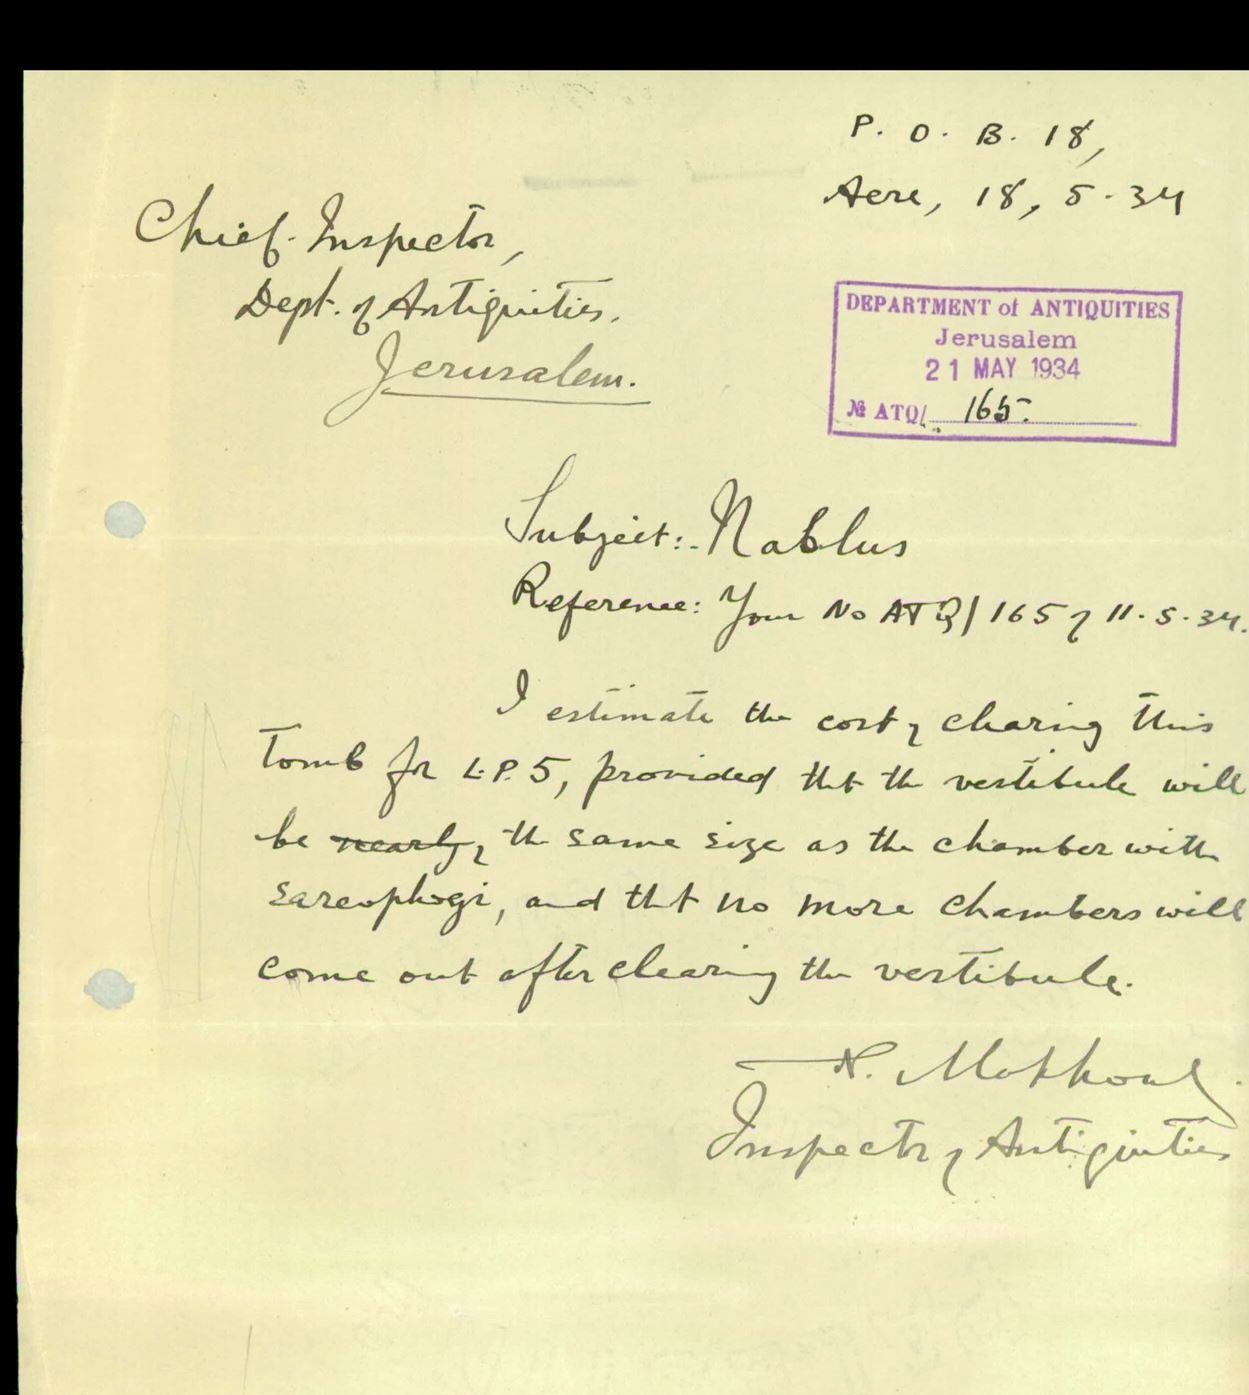 P. O. B. 18,
Acre, 18, 5. 34
Chief Inspector,
Dept. of Antiquities.
Jerusalem.
DEPARTMENT of ANTIQUITIES
Jerusalem
21 MAY 1934
№ ATQ/ 165.
Subject:- Nablus
Reference: Your No ATQ/165 of 11.5.34.
I estimate the cost of clearing this
tomb for L.P.5, provided that the vestibule will
be nearly of the same size as the chamber with
sarcophogi, and that no more chambers will
come out after clearing the vestibule.
N. Makhouly.
Inspector of Antiquities